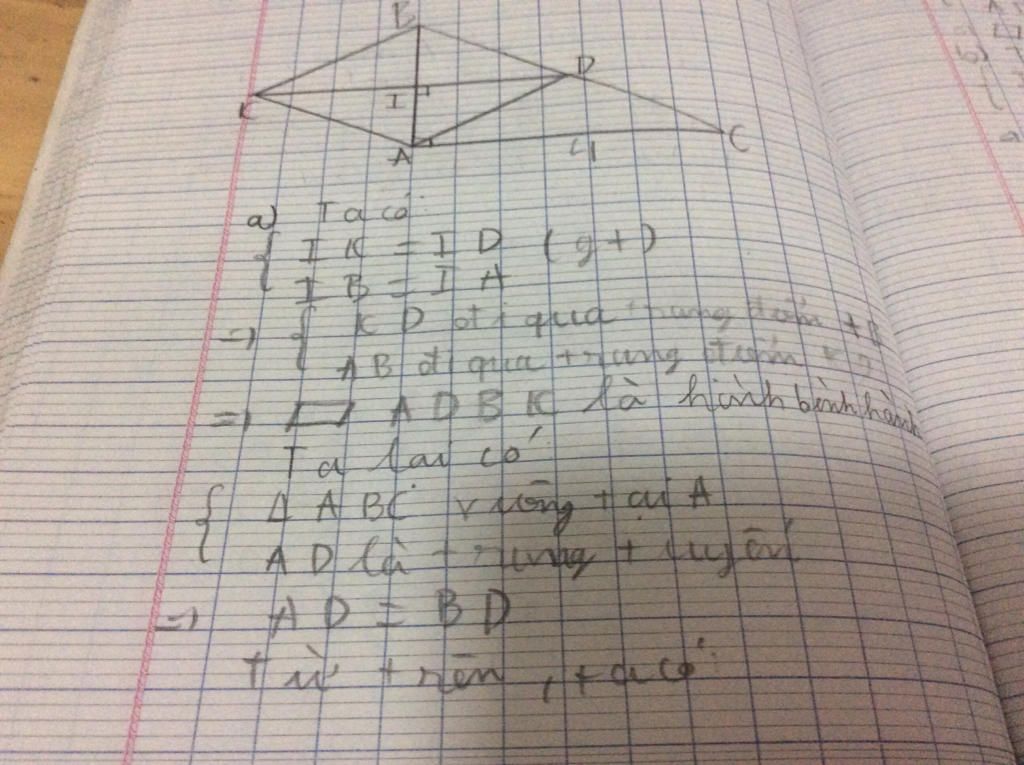 B
D
K
I
A
4
C
a) Ta có:
{ IK = ID (gt)
IB = IA
=> { KD đi qua trung điểm
AB đi qua trung điểm
=> ▱ ADBK là hình bình hành
Ta lại có
{ Δ ABC vuông tại A
AD là trung tuyến
=> AD = BD
Từ trên, ta có: